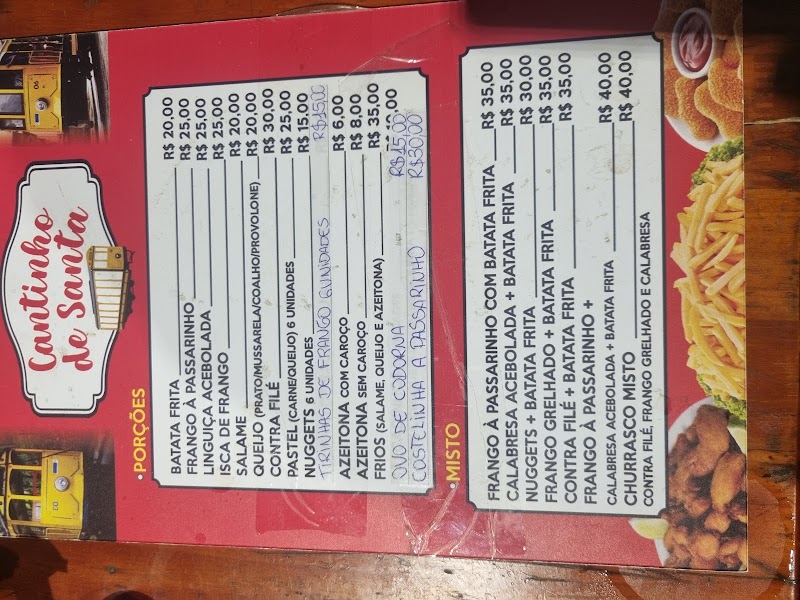 Cantinho
de Santa
• PORÇÕES
BATATA FRITA R$ 20,00
FRANGO À PASSARINHO R$ 25,00
LINGUIÇA ACEBOLADA R$ 25,00
ISCA DE FRANGO R$ 25,00
SALAME R$ 20,00
QUEIJO (PRATO/MUSSARELA/COALHO/PROVOLONE) R$ 20,00
CONTRA FILÉ R$ 30,00
PASTEL (CARNE/QUEIJO) 6 UNIDADES R$ 25,00
NUGGETS 6 UNIDADES R$ 15,00
TIRINHAS DE FRANGO 6UNIDADES R$15,00
AZEITONA COM CAROÇO R$ 6,00
AZEITONA SEM CAROÇO R$ 8,00
FRIOS (SALAME, QUEIJO E AZEITONA) R$ 35,00
OVO DE CODORNA R$15,00
COSTELINHA A PASSARINHO R$30,00
• MISTO
FRANGO À PASSARINHO COM BATATA FRITA R$ 35,00
CALABRESA ACEBOLADA + BATATA FRITA R$ 35,00
NUGGETS + BATATA FRITA R$ 30,00
FRANGO GRELHADO + BATATA FRITA R$ 35,00
CONTRA FILÉ + BATATA FRITA R$ 35,00
FRANGO À PASSARINHO +
CALABRESA ACEBOLADA + BATATA FRITA R$ 40,00
CHURRASCO MISTO R$ 40,00
CONTRA FILÉ, FRANGO GRELHADO E CALABRESA